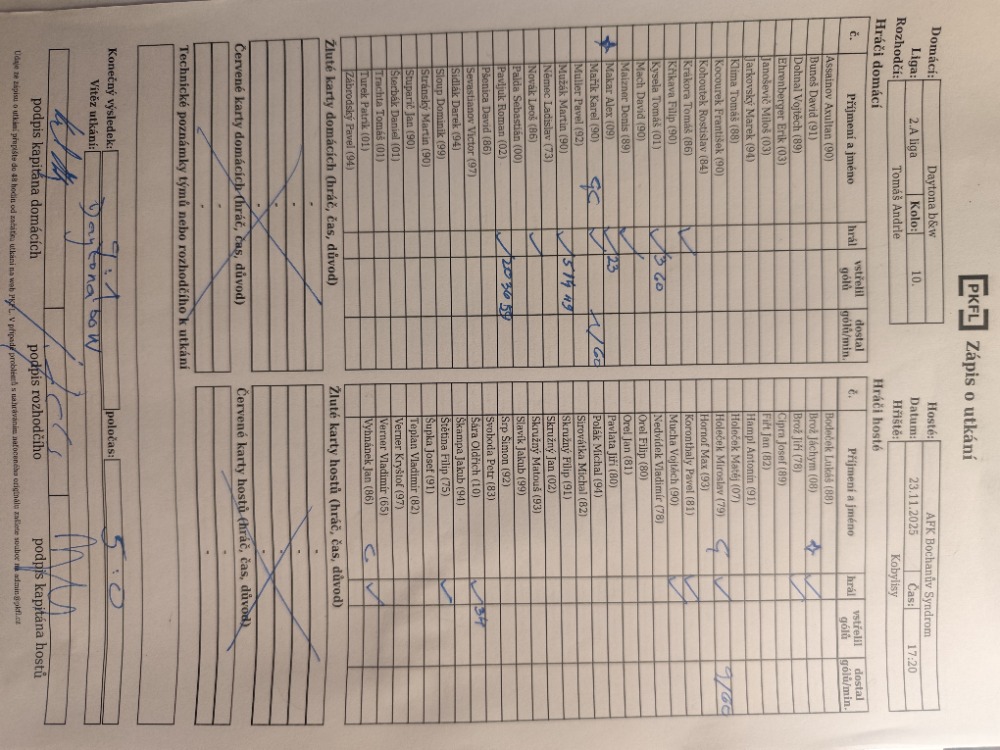 PKFL Zápis o utkání
Domácí: Daytona b&w
Liga: 2 A liga Kolo: 10.
Rozhodčí: Tomáš Andrle
Hosté: AFK Bochanův Syndrom
Datum: 23.11.2025 Čas: 17:20
Hřiště: Kobylisy
Hráči domácí
č. Příjmení a jméno hrál vstřelil gólů dostal gólů/min.
Assainov Aultan (90)
Buneš David (91)
Dohnal Vojtěch (89)
Ehrenberger Erik (03)
Janoševič Miloš (03)
Jarkovský Marek (94)
Klima Tomáš (88)
Kocourek František (90)
Kohoutek Rostislav (84)
Krakora Tomáš (86) ✓
Křikava Filip (90)
Kysela Tomáš (01) ✓ 3 60
Mach David (90)
Mairner Denis (89) ✓
Makar Alex (09) ✓ 23
Mařík Karel (90) GC ✓ 1/60
Muller Pavel (92)
Mužák Martin (90) ✓ 5 19 49
Němec Ladislav (73)
Novák Leoš (86) ✓
Palda Sebastián (00)
Pavdjuk Roman (02) ✓ 20 36 59
Pšenica David (86)
Sevastianov Victor (97)
Sidlák Darek (94)
Sloup Dominik (99)
Stránský Martin (90)
Stuparič Jan (90)
Šterbák Daniel (01)
Trachta Tomáš (01)
Turek Patrik (01)
Zábrodský Pavel (94)
Hráči hosté
č. Příjmení a jméno hrál vstřelil gólů dostal gólů/min.
Bodeček Lukáš (88)
Brož Jáchym (08) ✓
Brož Jiří (78) ✓
Cipra Josef (89)
Fiřt Jan (82)
Hampl Antonín (91)
Holeček Matěj (07)
Holeček Miroslav (79) G ✓ 9/60
Hornof Max (93)
Koronthaly Pavel (81) ✓
Mucha Vojtěch (90) ✓
Nedvídek Vladimír (78)
Orel Filip (80)
Orel Jan (81)
Pavlata Jiří (80)
Polák Michal (94)
Sirovátka Michal (82)
Skružný Filip (91)
Skružný Jan (02)
Skružný Matouš (93)
Slavík Jakub (99)
Srp Šimon (92)
Svoboda Petr (83)
Šára Oldřich (10) ✓ 34
Škampa Jakub (94)
Štětina Filip (75) ✓
Šupka Josef (91)
Teplan Vladimír (82)
Verner Kryštof (97)
Verner Vladimír (65)
Vyhnánek Jan (86) C ✓
Žluté karty domácích (hráč, čas, důvod)
Žluté karty hostů (hráč, čas, důvod)
Červené karty domácích (hráč, čas, důvod)
Červené karty hostů (hráč, čas, důvod)
Technické poznámky týmů nebo rozhodčího k utkání
Konečný výsledek: 9:1 poločas: 5:0
Vítěz utkání: Daytona b&w
podpis kapitána domácích podpis rozhodčího podpis kapitána hostů
Údaje ze zápisu o utkání přepište do 48 hodin od začátku utkání na web PKFL. V případě problémů s nahráváním nafoceného originálu zašlete soubor na admin@pkfl.cz